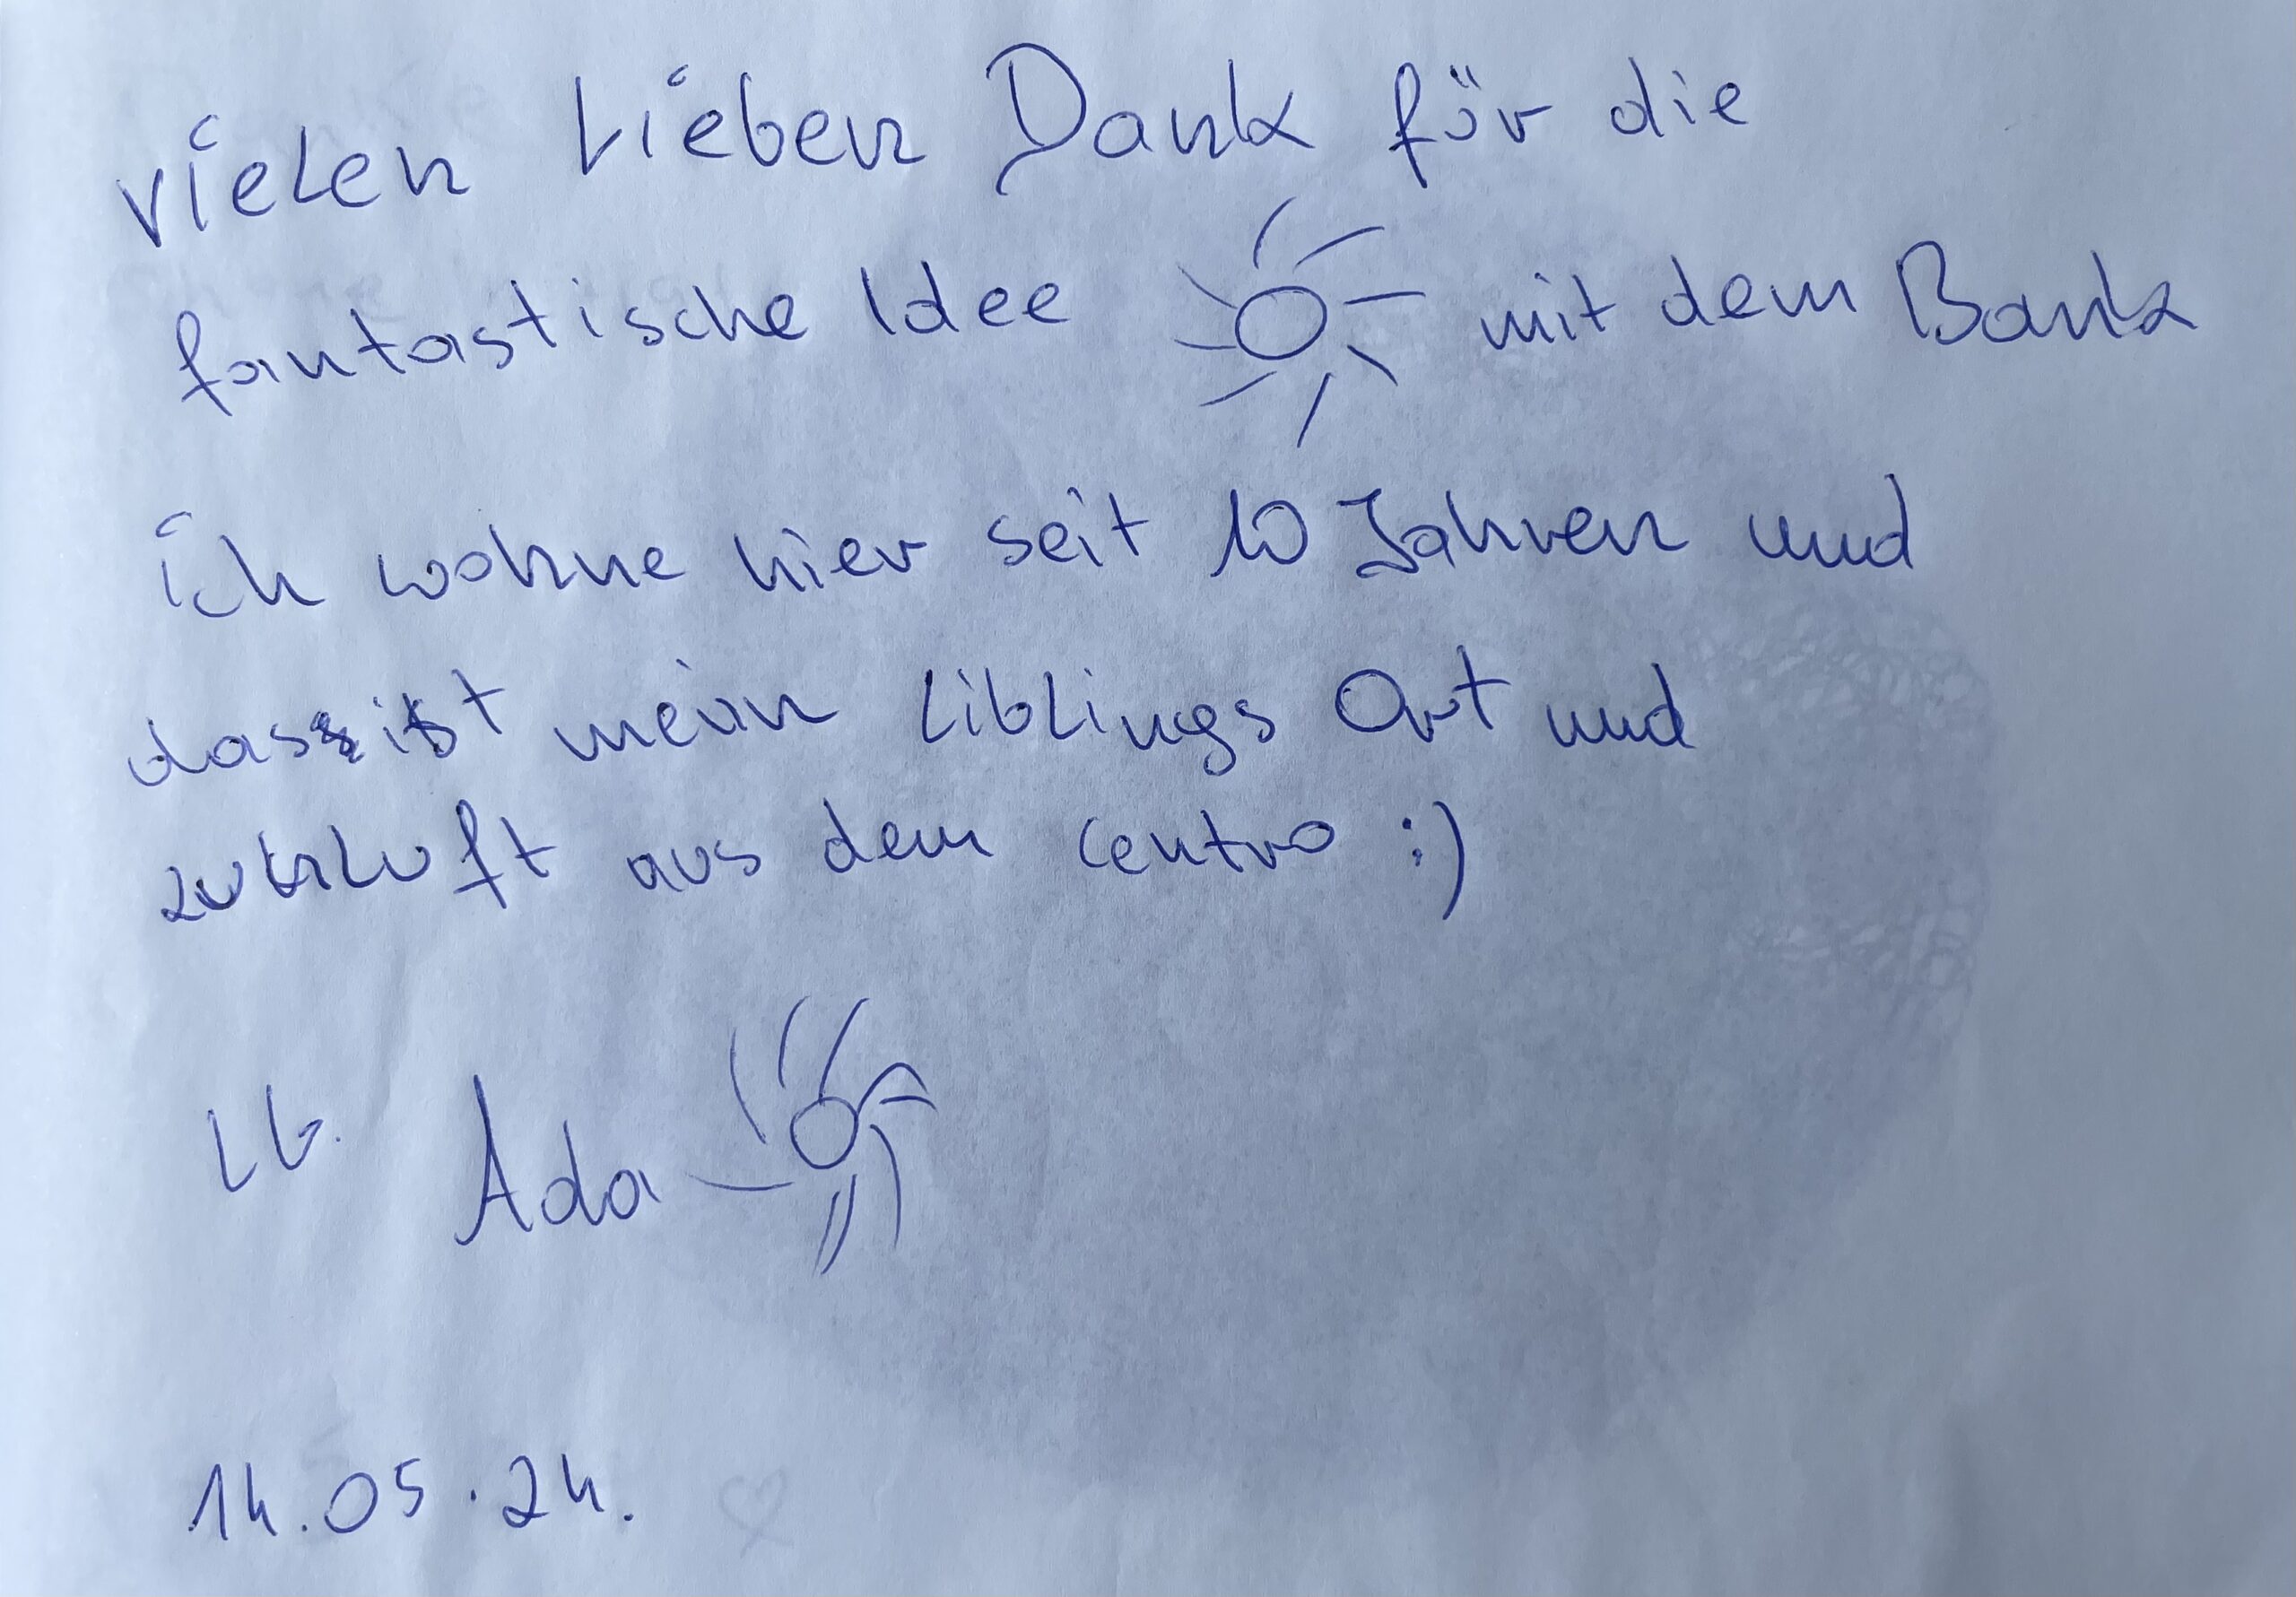 vielen lieben Dank für die
fantastische Idee mit dem Bank
ich wohne hier seit 10 Jahren und
das ist mein Liblings Ort und
aus dem centro :)
LG. Ada
14.05.24.